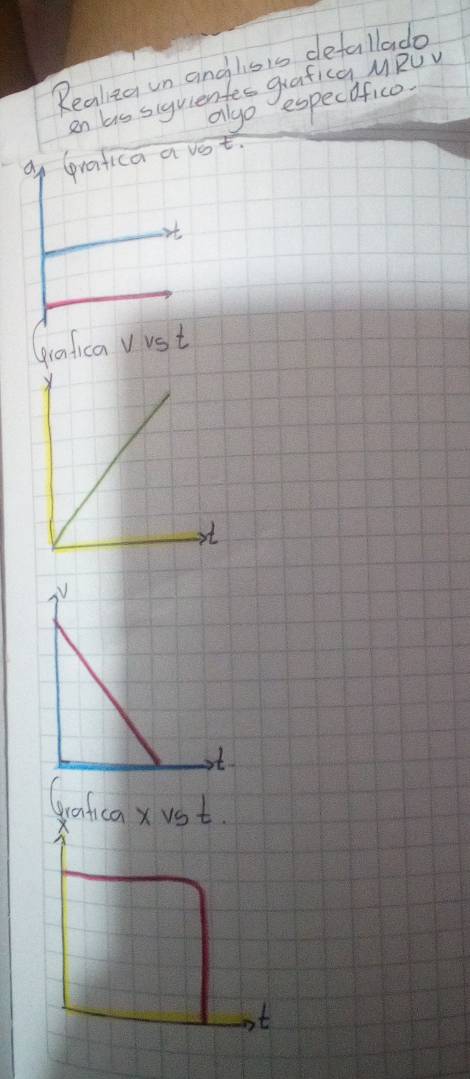 Realiza un análisis detallado
en las siguientes grafica MRUV
algo específico.
a
Grafica a vs t.
t
Grafica v vs t
v
t
v
t
Grafica x vs t.
x
t